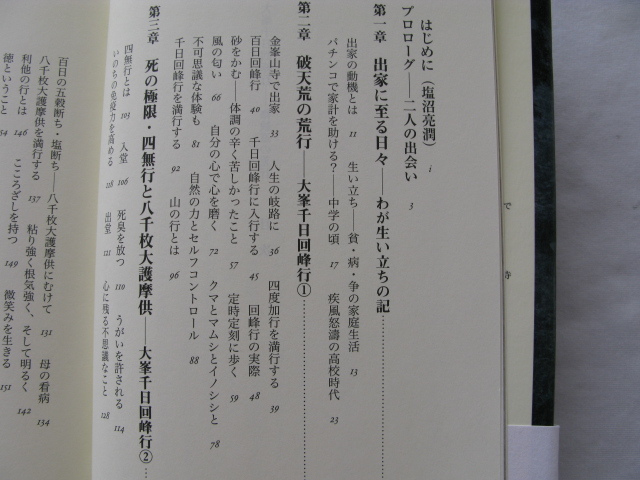 はじめに（塩沼亮潤） i
プロローグ――二人の出会い 3
第一章 出家に至る日々――わが生い立ちの記……………
出家の動機とは 11 生い立ち――貧・病・争の家庭生活 13
パチンコで家計を助ける？――中学の頃 17 疾風怒濤の高校時代 23
第二章 破天荒の荒行――大峯千日回峰行①……………
金峯山寺で出家 33 人生の岐路に 36 四度加行を満行する 39
百日回峰行 40 千日回峰行に入行する 45 回峰行の実際 48
砂をかむ――体調の辛く苦しかったこと 57 定時定刻に歩く 59
風の匂い 66 自分の心で心を磨く 72 クマとマムシとイノシシと 78
不可思議な体験も 81 自然の力とセルフコントロール 88
千日回峰行を満行する 92 山の行とは 96
第三章 死の極限・四無行と八千枚大護摩供――大峯千日回峰行②……
四無行とは 103 入堂 106 死臭を放つ 110 うがいを許される 114
いのちの免疫力を高める 118 出堂 121 心に残る不思議なこと 128
百日の五穀断ち・塩断ち――八千枚大護摩供にむけて 131 母の看病 134
八千枚大護摩供を満行する 137 粘り強く根気強く、そして明るく 142
利他の行とは 146 こころざしを持つ 149 微笑みを生きる 151
徳ということ 154